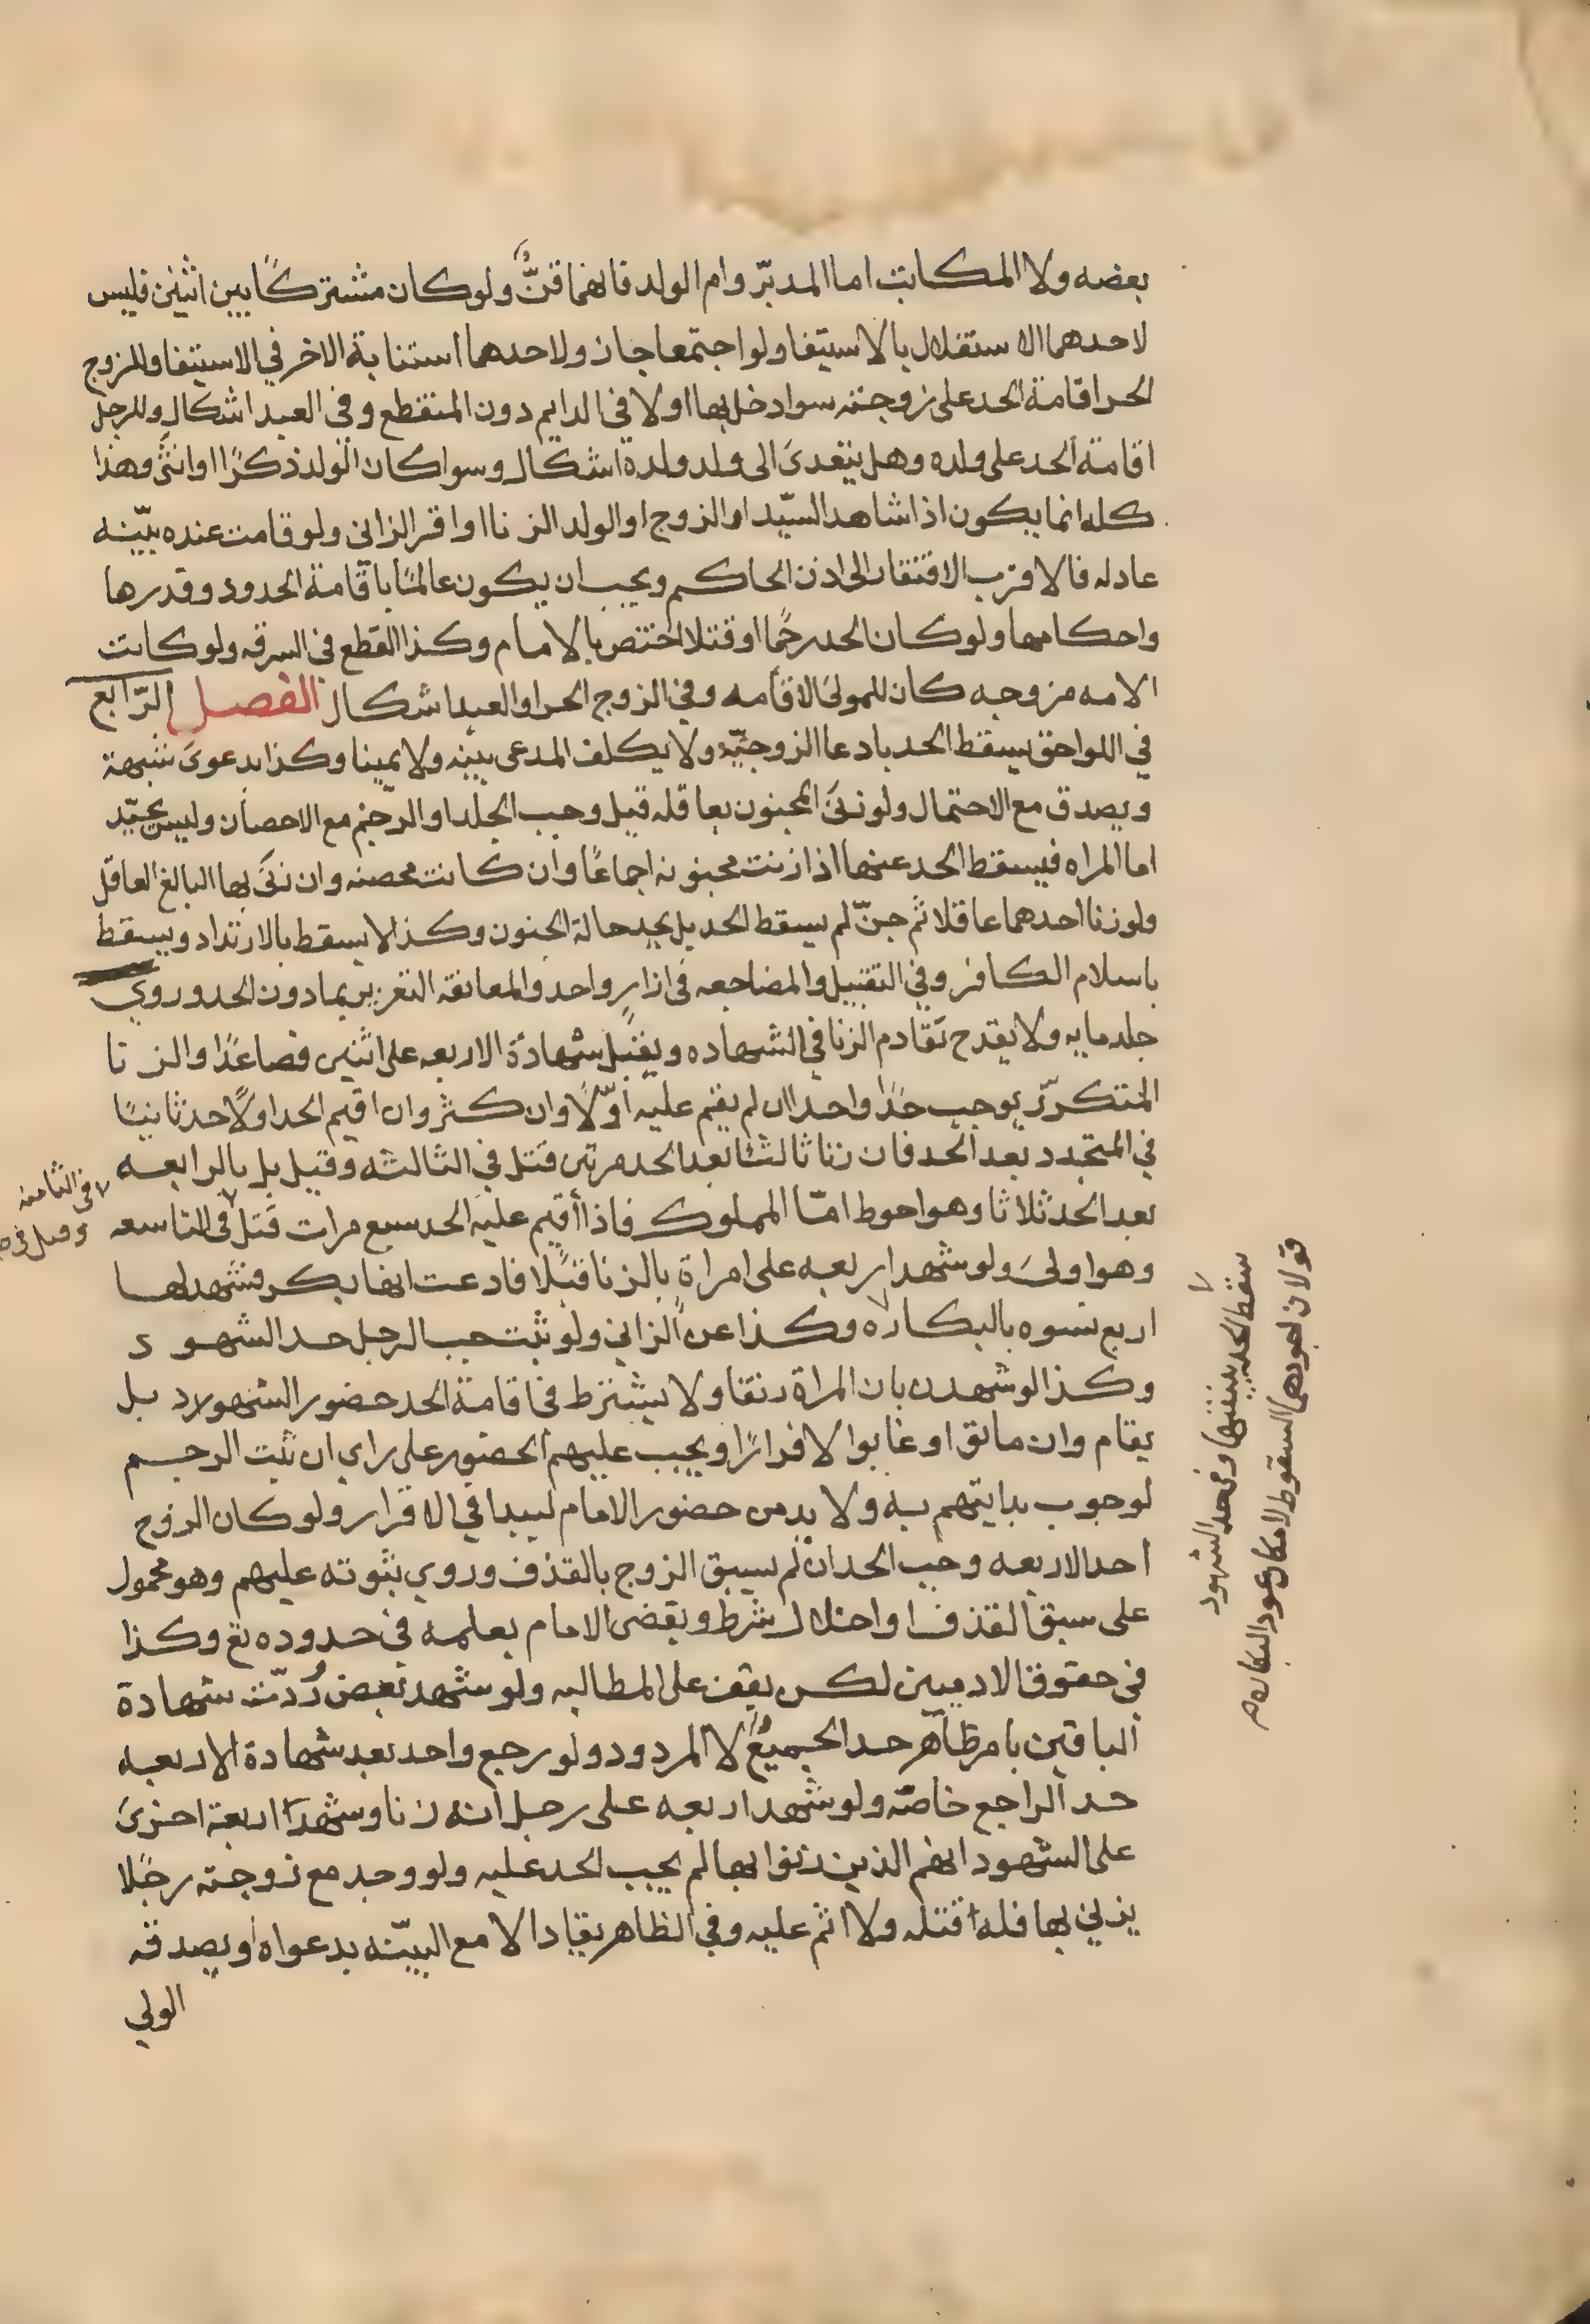 بعضه ولا المكاتب اما المدبّر وام الولد فانهما قنٌّ ولو كان مشتركًا بين اثنين فليس
لاحدهما الاستقلال بالاستيفا ولو اجتمعا جاز ولاحدهما استنابة الاخر في الاستيفا وللزوج
الحر اقامة الحد على زوجته سوا دخل بها او لا في الدايم دون المنقطع وفي العبد اشكال وللرجل
اقامة الحد على ولده وهل يتعدى الى ولد ولده اشكال وسوا كان الولد ذكرًا او انثى وهذا
كله انما يكون اذا شاهد السيّد او الزوج او الوالد الزنا او اقر الزاني ولو قامت عنده بيّنه
عادله فالاقرب الافتقار الى اذن الحاكم ويجب ان يكون عالمًا باقامة الحدود وقدرها
واحكامها ولو كان الحد رجمًا او قتلا اختص بالامام وكذا القطع في السرقه ولو كانت
الامه مزوجه كان للمولى الاقامه وفي الزوج الحر او العبد اشكال الفصل الرّابع
في اللواحق يسقط الحد بادعا الزوجيّه ولا يكلف المدعى بينه ولا يمينا وكذا بدعوى شبهة
ويصدق مع الاحتمال ولو زنى المجنون بعاقله قيل وجب الجلد او الرجم مع الاحصان وليس بجيّد
اما المراه فيسقط الحد عنها اذا زنت مجنونه اجماعًا وان كانت محصنه وان زنى بها البالغ العاقل
ولو زنا احدهما عاقلا ثم جنّ لم يسقط الحد بل يحد حالة الجنون وكذا لا يسقط بالارتداد ويسقط
باسلام الكافر وفي التقبيل والمضاجعه في ازارٍ واحد والمعانقة التعزير بما دون الحد وروي
جلد مايه ولا يقدح تقادم الزنا في الشهاده ويقبل شهادة الاربعه على اثنين فصاعدًا والزنا
المتكرّر يوجب حدًا واحدا ان لم يقم عليه اوّلًا وان كثر وان اقيم الحد اولًا حد ثانيًا
في المتجدد بعد الحد فان زنا ثالثا بعد الحد مرتين قتل في الثالثه وقيل بل بالرابعه
بعد الحد ثلاثا وهو احوط امّا المملوك فاذا أقيم عليه الحد سبع مرات قتل في التاسعه
في الثامنه
وقيل في
وهو اولى ولو شهد اربعه على امراة بالزنا قبلًا فادعت انها بكر فشهد لها
اربع نسوه بالبكاره وكذا عن الزاني ولو ثبت جب الرجل حد الشهود
وكذا لو شهدن بان المراة رتقا ولا يشترط في اقامة الحد حضور الشهود بل
يقام وان ماتوا او غابوا لا فرارًا ويجب عليهم الحضور على راي ان ثبت الرجم
لوجوب بدايتهم به ولا بد من حضور الامام ليبدا في الاقرار ولو كان الزوج
احد الاربعه وجب الحد ان لم يسبق الزوج بالقذف وروي ثبوته عليهم وهو محمول
على سبق القذف او اختلال شرط ويقضى الامام بعلمه في حدوده تع وكذا
في حقوق الادميين لكن يقف على المطالبه ولو شهد بعض رُدّت شهادة
الباقين بامر ظاهر حد الجميعُ لا المردود ولو رجع واحد بعد شهادة الاربعه
حد الراجع خاصّه ولو شهد اربعه على رجل انه زنا وشهد اربعة اخرى
على الشهود انهم الذين زنوا بها لم يجب الحد عليه ولو وجد مع زوجته رجلًا
يزني بها فله قتله ولا اثم عليه وفي الظاهر يقاد الا مع البيّنه بدعواه او يصدقه
الولي
سقط الحد ببينتها وفي حد الشهود
قولان اجودهما السقوط لامكان عود البكاره